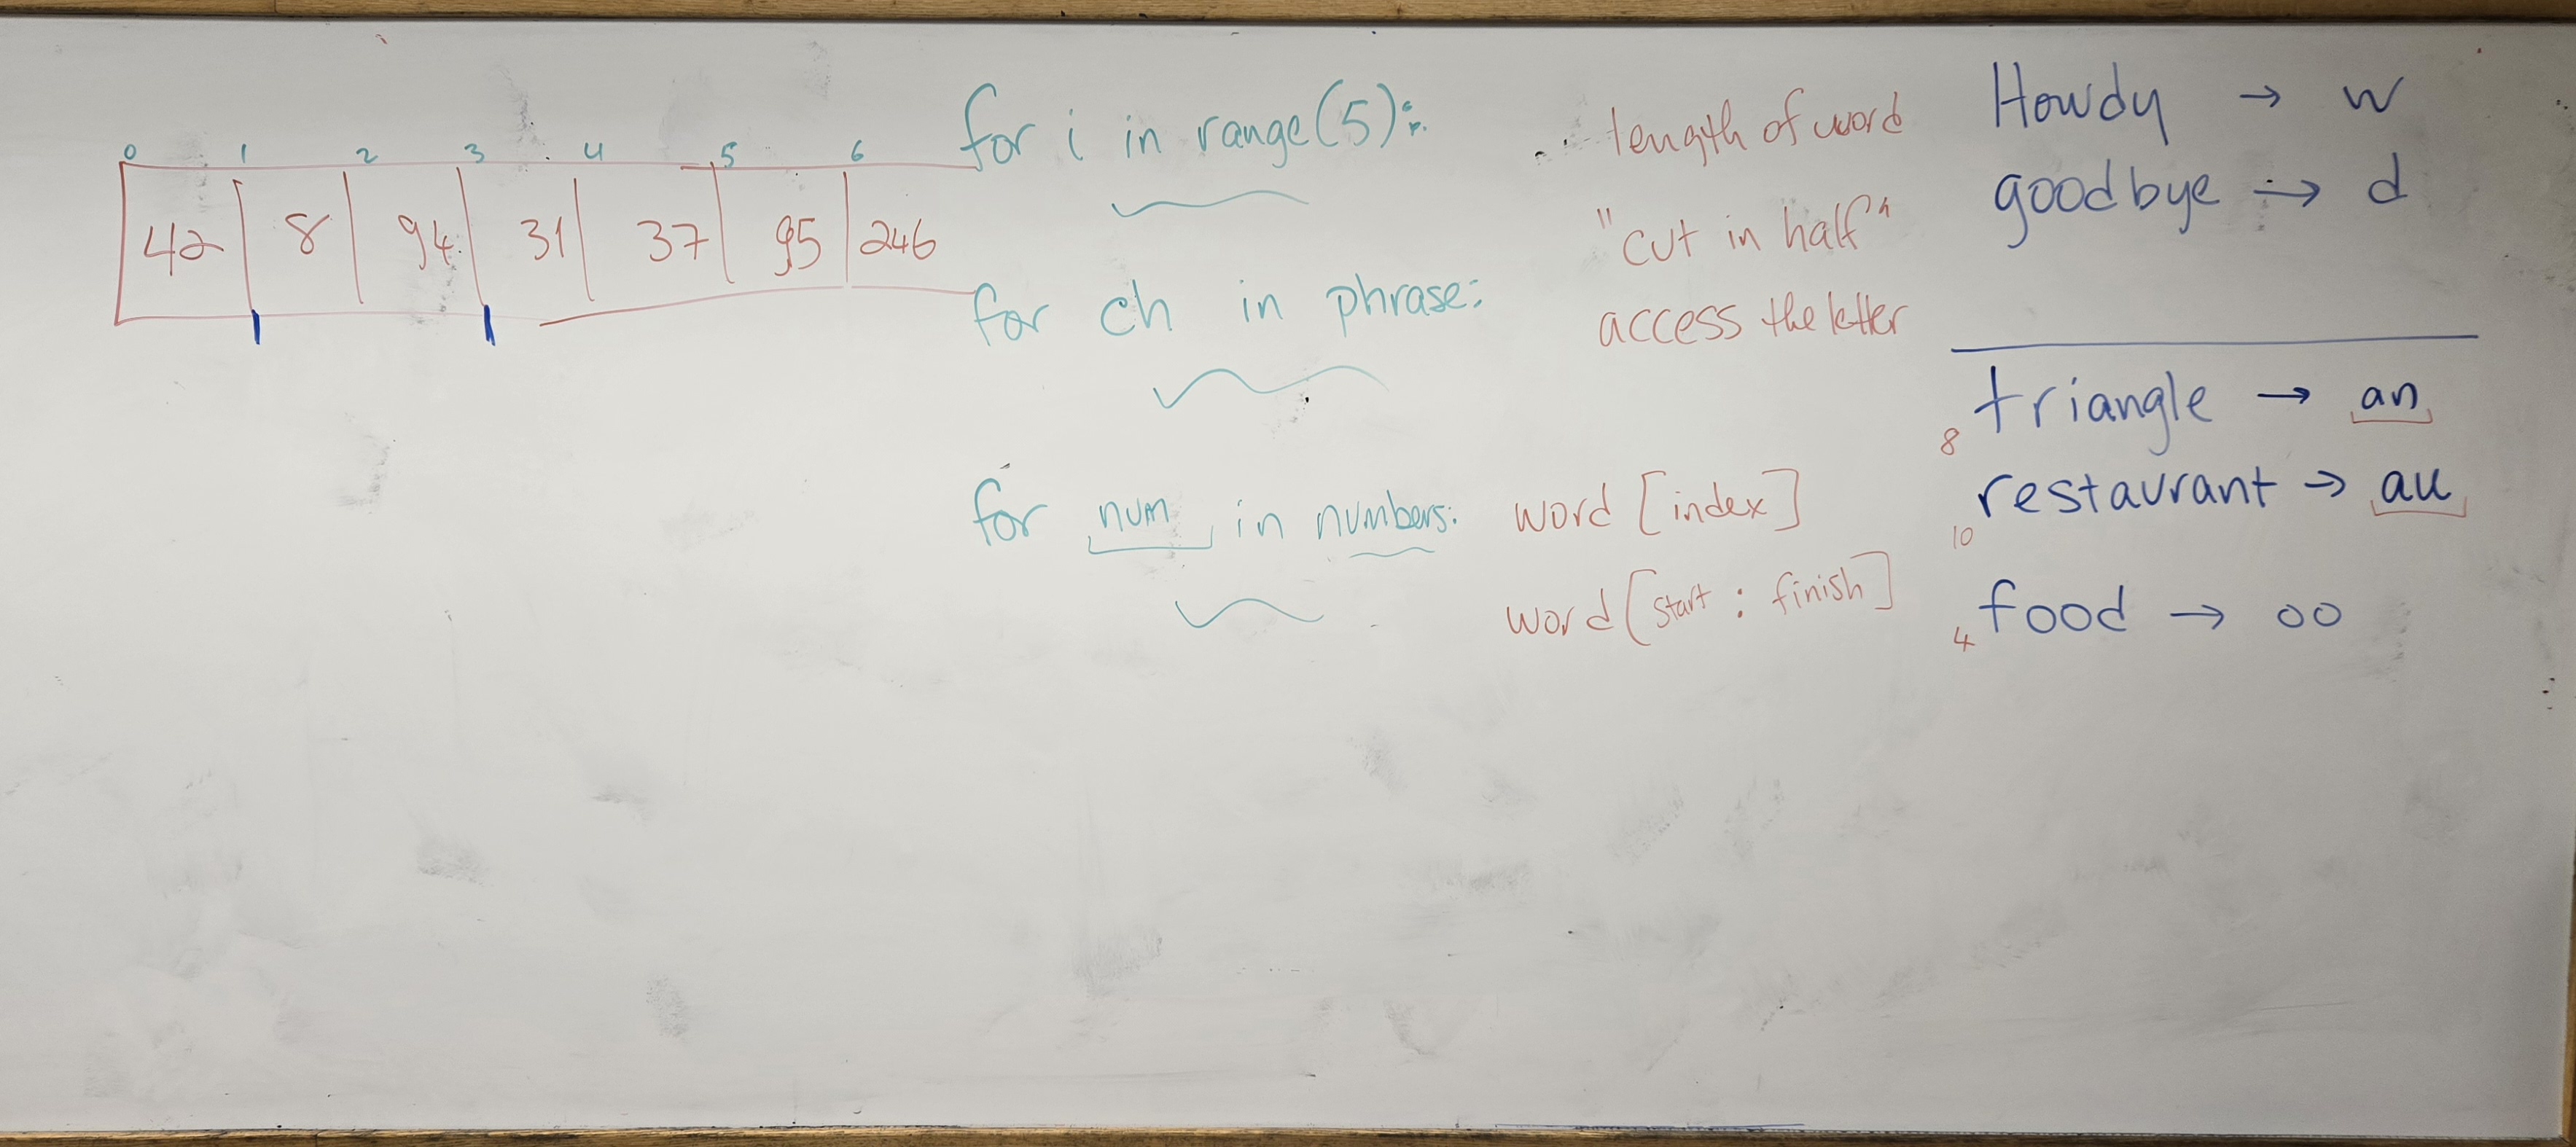 0 1 2 3 4 5 6
42 8 94 31 37 95 246
for i in range(5):
for ch in phrase:
for num in numbers:
length of word
"cut in half"
access the letter
word [index]
word [start : finish]
Howdy → w
goodbye → d
triangle → an
8
restaurant → au
10
food → oo
4